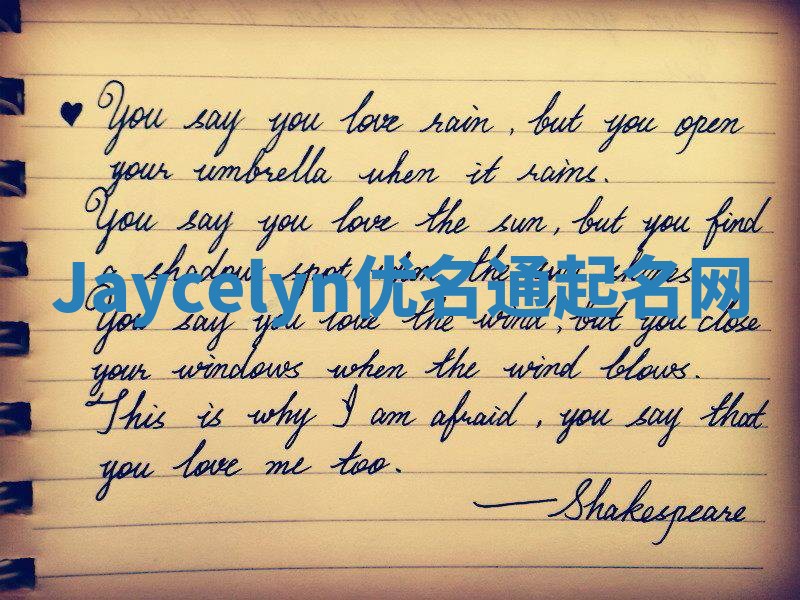 ♥ You say you love rain, but you open
your umbrella when it rains.
You say you love the sun, but you find
a shadow spot when the sun shines.
Jaycelyn优名通起名网
You say you love the wind, but you close
your windows when the wind blows.
This is why I am afraid, you say that
you love me too.
—Shakespeare